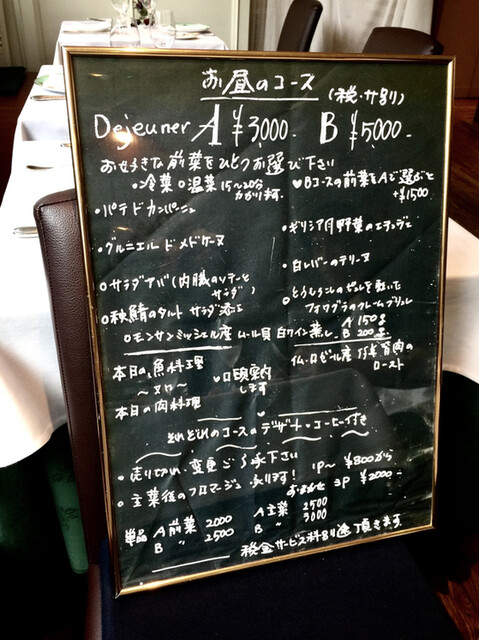 お昼のコース
(税・サ別)
Dejeuner A ¥3,000- B ¥5,000-
お好きな前菜をひとつお選び下さい
•冷菜 ○温菜 15~20分かかります。
♥Bコースの前菜をAで選ぶと+¥1500
•パテドカンパーニュ
•ギリシア風野菜のエチュベ
•グルニエル ド メドケーヌ
•白レバーのテリーヌ
○サラダアバ(内臓のソテーとサラダ)
•とうもろこしのピュレを敷いた
フォワグラのクレームブリュレ
○秋鯖のタルト サラダ添エ
○モンサンミッシェル産 ムール貝 白ワイン蒸し A 150g B 200g
本日の魚料理
~又ハ~
本日の肉料理
♥口頭案内します
仏・ロゼール産 仔羊肩肉のロースト
それぞれのコースのデザート・コーヒー付き
•売り切れ、変更ご了承下さい
•主菜後のフロマージュ 承ります! 1P~ ¥800から
おまかせ 3P ¥2000-
単品 A 前菜 2000 A 主菜 2500
B 〃 2500 B 〃 3000
税金サービス料別途頂きます